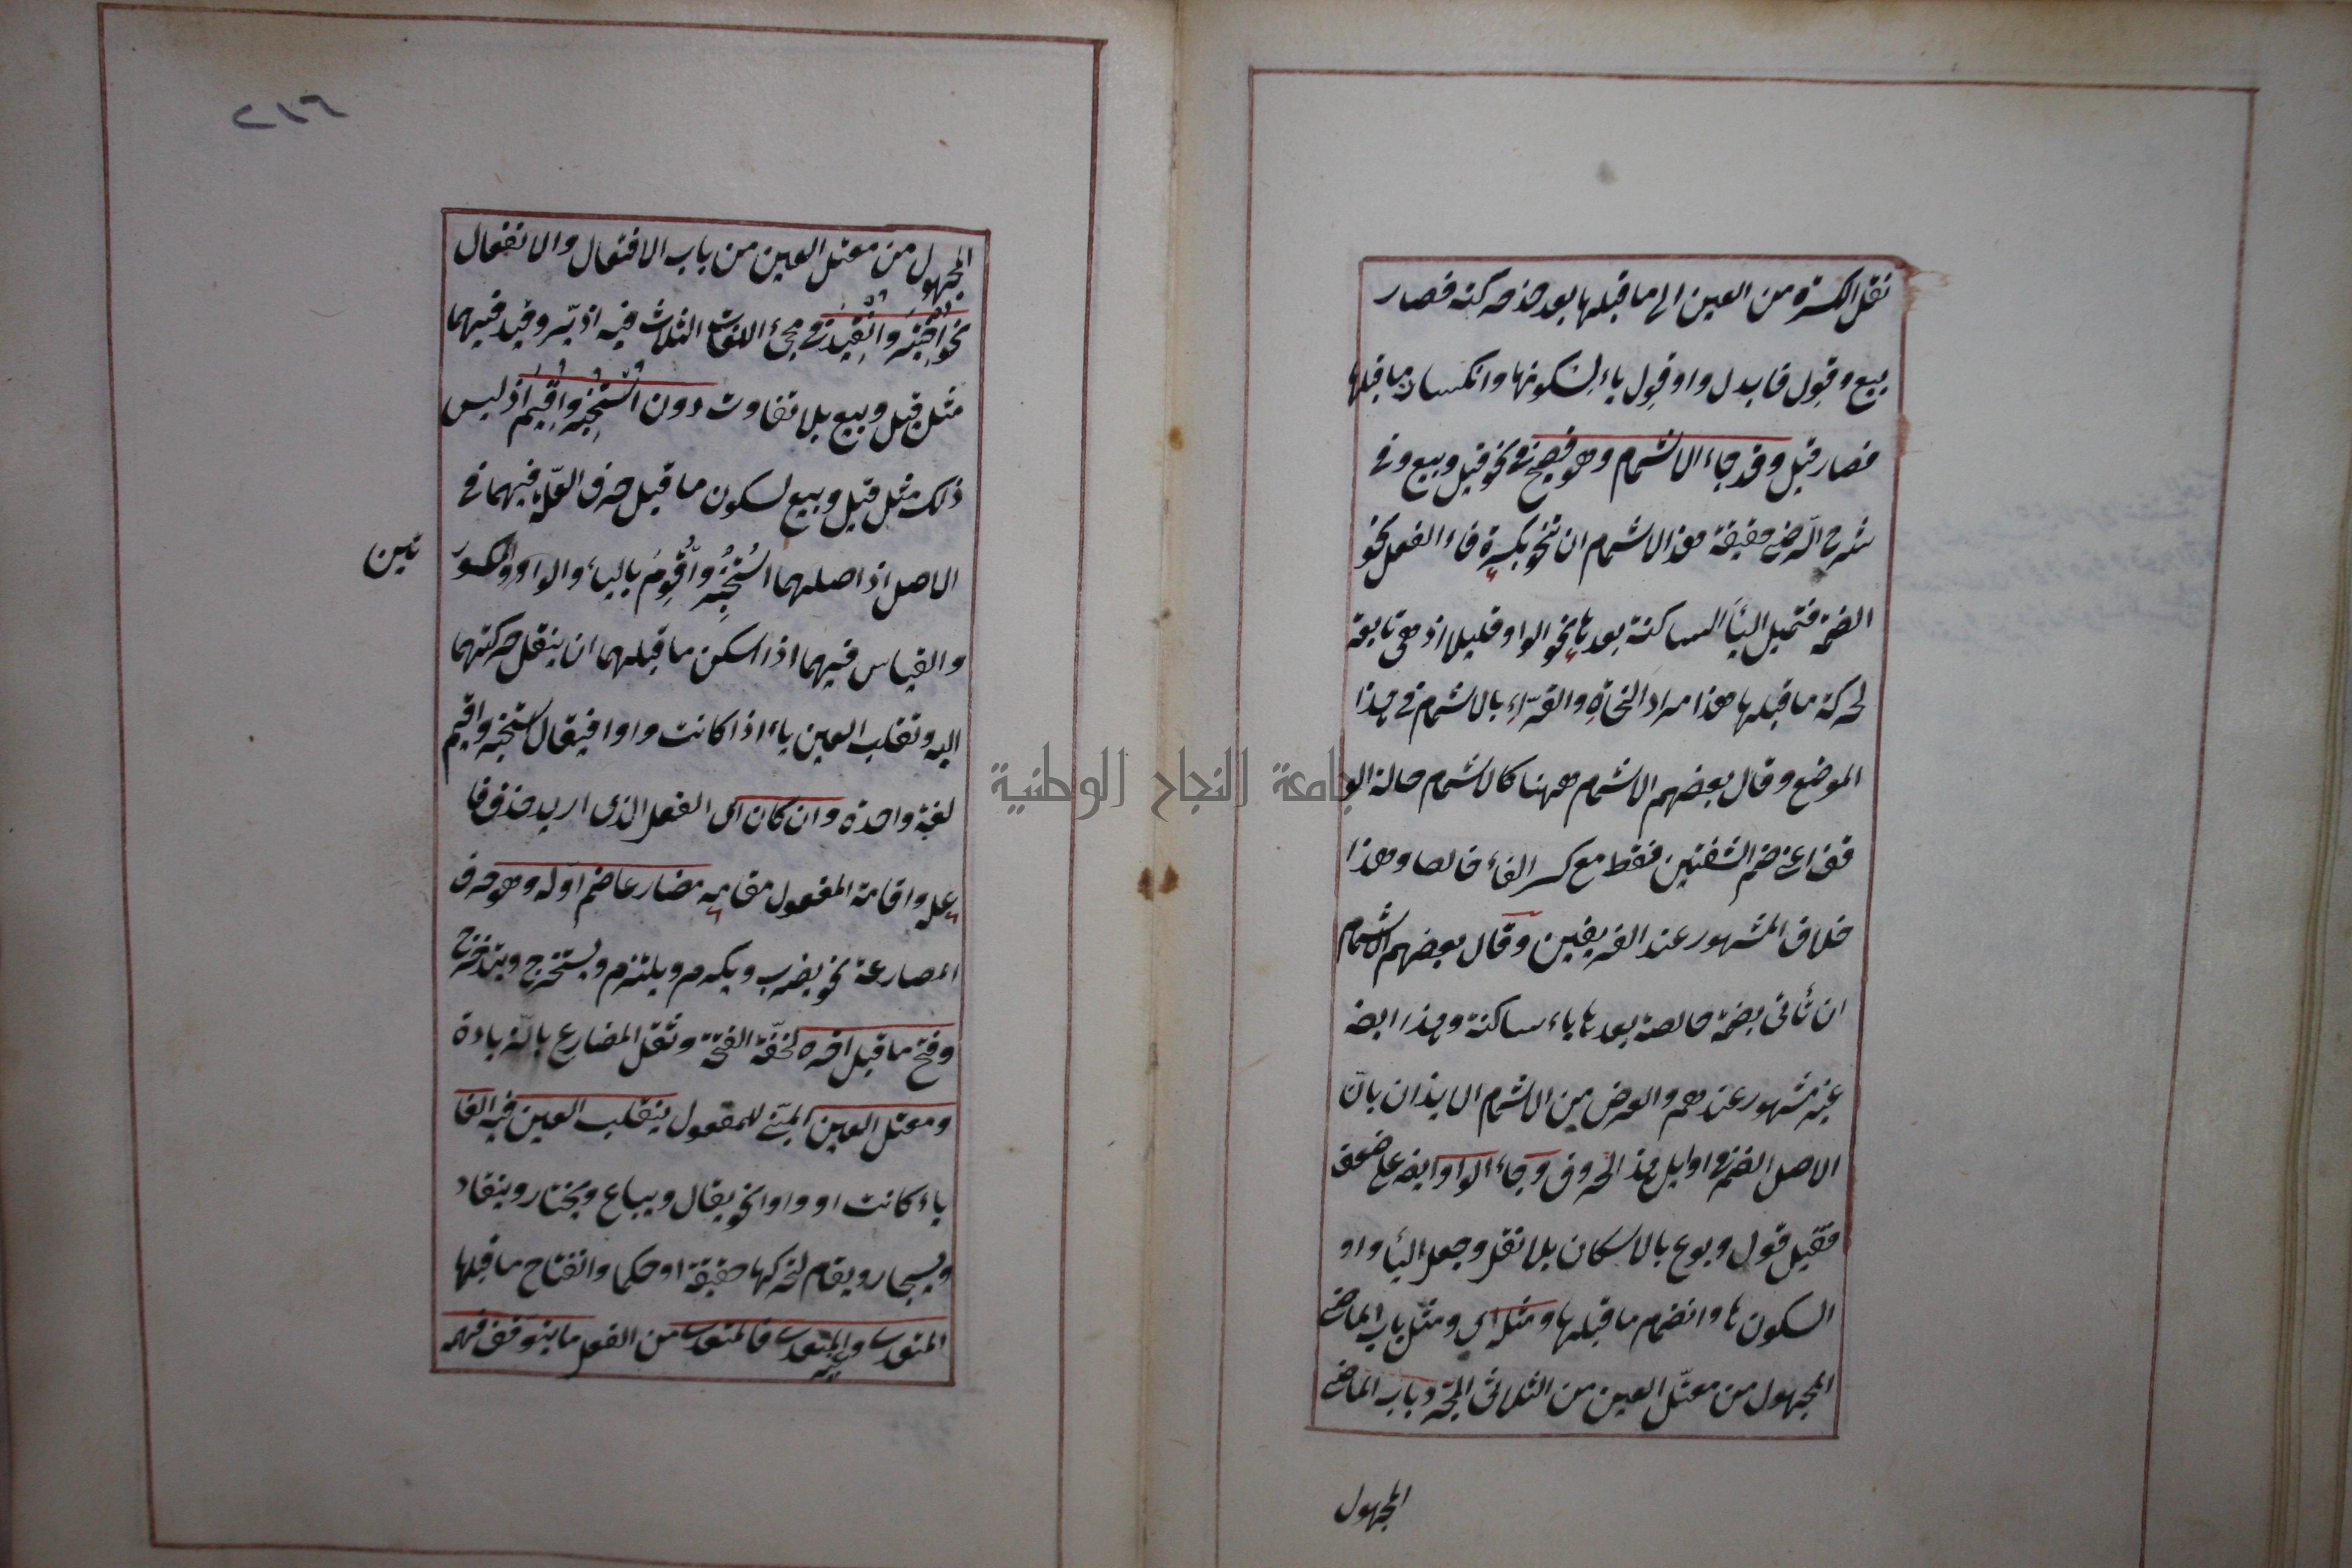 نقل الكسرة من العين الى ما قبلها بعد حذف حركته فصار
بيع وقول فابدل واو قول ياء لسكونها وانكسار ما قبلها
فصار قيل وقد جاء الاشمام وهو فصيح في نحو قيل وبيع وفي
شرح الرضي حقيقة هذا الاشمام ان تنحو بكسرة فاء الفعل نحو
الضمة فتميل الياء الساكنة بعدها نحو الواو قليلا اذ هي تابعة
لحركة ما قبلها هذا مراد النحاة والقراء بالاشمام في هذا
الموضع وقال بعضهم الاشمام ههنا كالاشمام حالة الو
قف اعني ضم الشفتين فقط مع كسر الفاء خالصا وهذا
خلاف المشهور عند الفريقين وقال بعضهم الاشمام
ان تأتى بضمة خالصة بعدها ياء ساكنة وهذا ايضه
غير مشهور عندهم والغرض من الاشمام الايذان بان
الاصل الضم في اوايل هذا الحروف وجاء الواو ايضه على ضعف
فقيل قول وبوع بالاسكان بلا نقل وجعل الياء واو
السكونها وانضمام ما قبلها ومثله اي ومثل باب الماضي
المجهول من معتل العين من الثلاثى المجرد باب الماضي
المجهول
٢١٦
المجهول من معتل العين من باب الافتعال والانفعال
نحو اختير وانقيد في مجئ اللغات الثلاث فيه اذ تير وقيد فيهما
مثل قيل وبيع بلا تفاوت دون استخير واقيم اذ ليس
ذلك مثل قيل وبيع لسكون ما قبل حرف العلة فيهما في
الاصل اذ اصلهما استخير واقوم بالياء والواو المكسور
تين
والقياس فيهما اذا اسكن ما قبلهما ان ينقل حركتهما
اليه وتقلب العين ياء اذا كانت واوا فيقال استخير واقيم
لغة واحدة وان كان اى الفعل الذى اريد حذف فا
عله واقامة المفعول مقامه مضارعا ضم اوله وهو حرف
المضارعة نحو يضرب ويكرم ويلتزم ويستخرج ويتدحرج
وفتح ما قبل اخره لخفة الفتحة وثقل المضارع بالزيادة
ومعتل العين المبني للمفعول ينقلب العين فيه الفا
ياء كانت او واوا نحو يقال ويباع ويختار وينقاد
ويستجار ويقام لتحركها حقيقة او حكما وانفتاح ما قبلها
المتعدى وغير المتعدى فالمتعدى من الفعل ما يتوقف فهمه
جامعة النجاح الوطنية